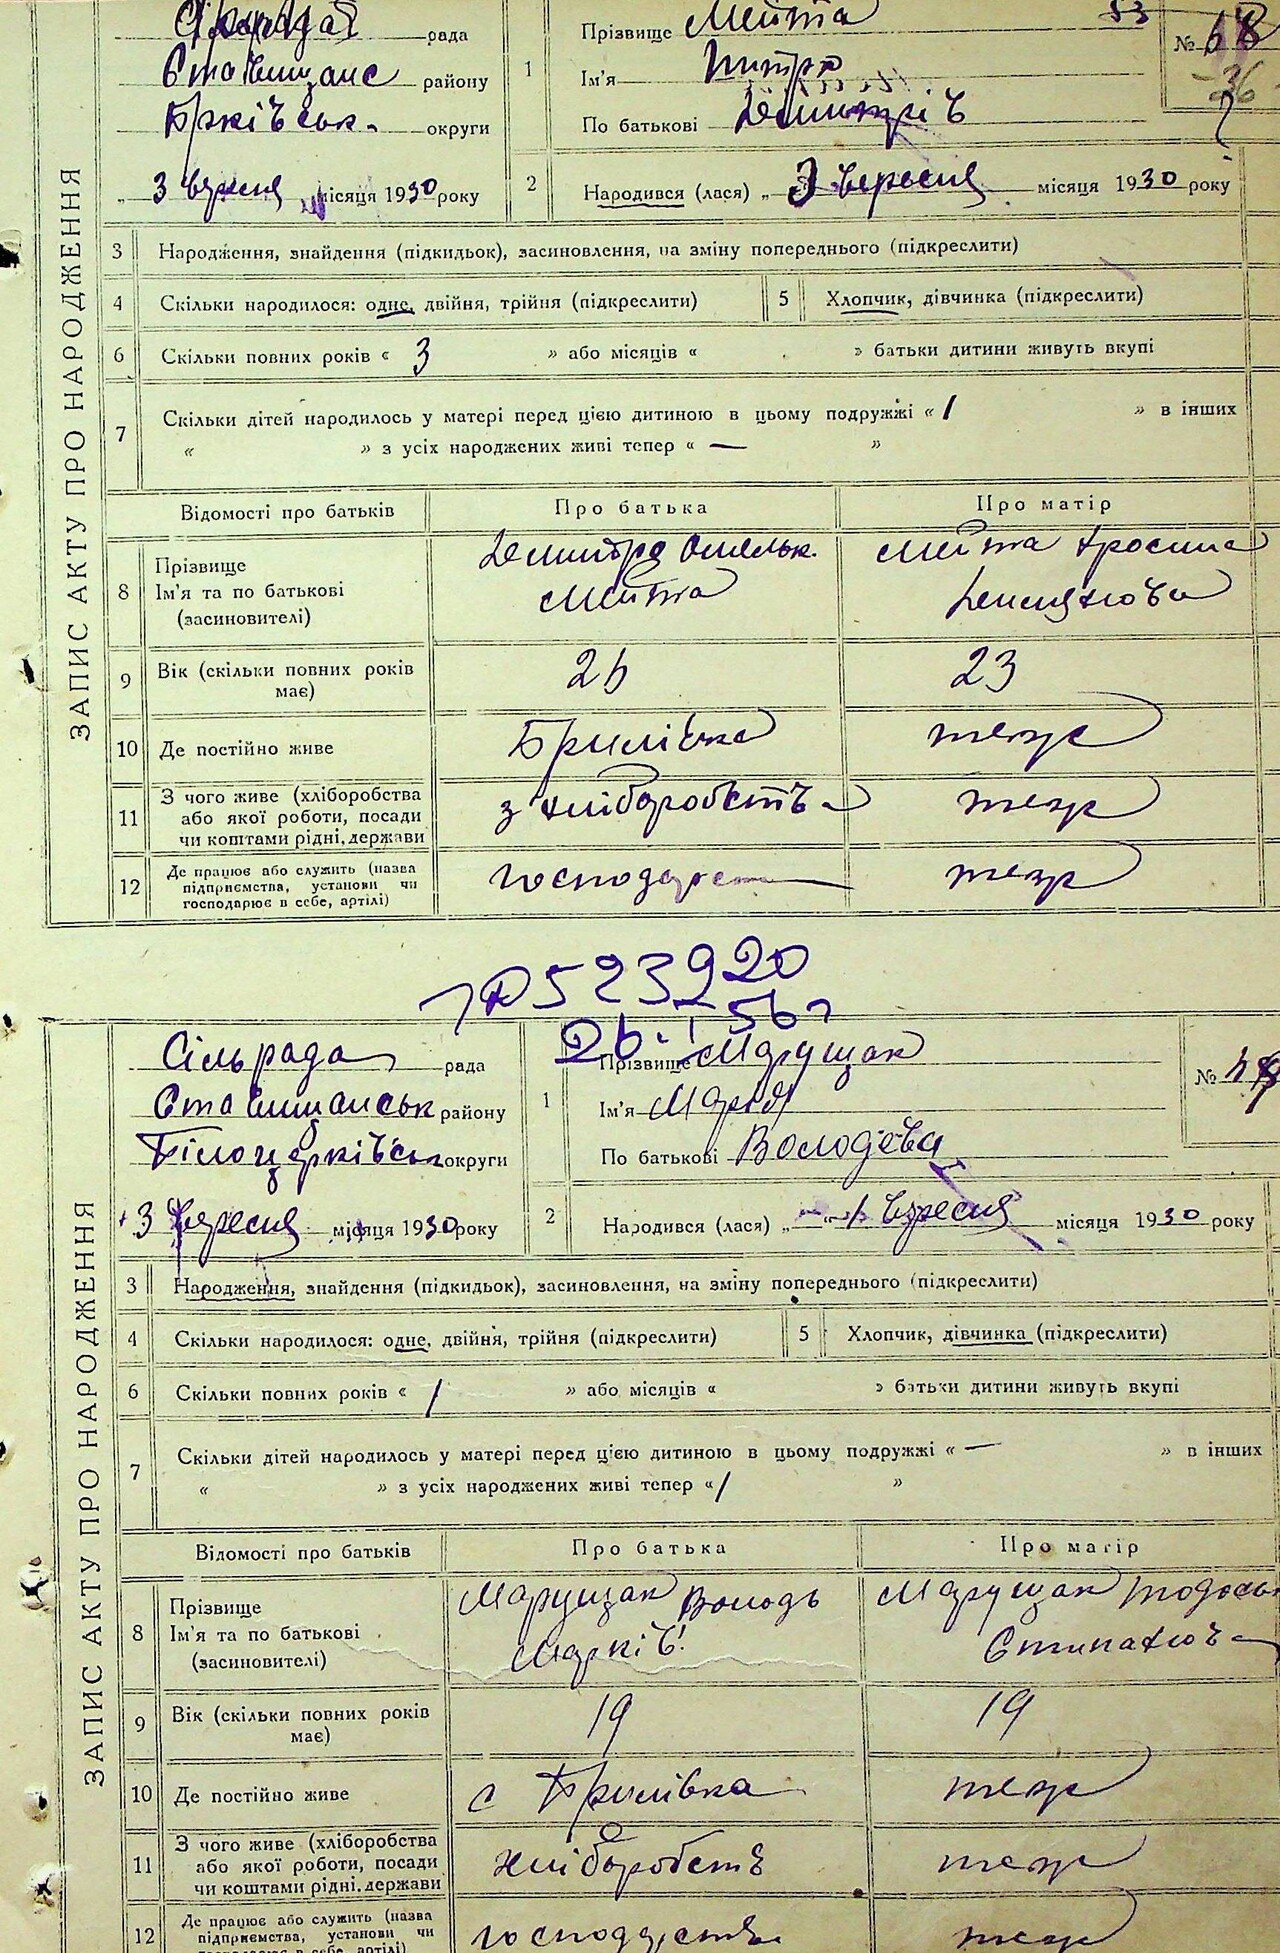 рада
Ставищанс району
округи
3 вересня місяця 1930 року
1
Прізвище Мейта
Ім'я
По батькові
53
№ 68
36
2
Народився (лася) „ 3 вересня місяця 1930 року
ЗАПИС АКТУ ПРО НАРОДЖЕННЯ
3 Народження, знайдення (підкидьок), засиновлення, на зміну попереднього (підкреслити)
4 Скільки народилося: одне, двійня, трійня (підкреслити)
5 Хлопчик, дівчинка (підкреслити)
6 Скільки повних років « 3 » або місяців « » батьки дитини живуть вкупі
7 Скільки дітей народилось у матері перед цією дитиною в цьому подружжі « 1 » в інших
« » з усіх народжених живі тепер « — »
Відомості про батьків
Про батька
Про матір
8
Прізвище
Ім'я та по батькові
(засиновителі)
Омельк.
Мейта
Мейта
9 Вік (скільки повних років
має)
26
23
10 Де постійно живе
Брилівка
теж
11
З чого живе (хліборобства
або якої роботи, посади
чи коштами рідні, держави
з хліборобств
теж
12
Де працює або служить (назва
підприємства, установи чи
господарює в себе, артілі)
теж
523920
Сільрада рада
Ставищанськ району
Білоцерківськ округи
3 вересня місяця 1930 року
1
Прізвище Марущак
Ім'я Марія
По батькові
№
2
Народився (лася) „ 1 вересня місяця 1930 року
ЗАПИС АКТУ ПРО НАРОДЖЕННЯ
3 Народження, знайдення (підкидьок), засиновлення, на зміну попереднього (підкреслити)
4 Скільки народилося: одне, двійня, трійня (підкреслити)
5 Хлопчик, дівчинка (підкреслити)
6 Скільки повних років « 1 » або місяців « » батьки дитини живуть вкупі
7 Скільки дітей народилось у матері перед цією дитиною в цьому подружжі « — » в інших
« » з усіх народжених живі тепер « 1 »
Відомості про батьків
Про батька
Про матір
8
Прізвище
Ім'я та по батькові
(засиновителі)
Марущак Володь
Марків
Марущак
9 Вік (скільки повних років
має)
19
19
10 Де постійно живе
с Брилівка
теж
11
З чого живе (хліборобства
або якої роботи, посади
чи коштами рідні, держави
хліборобств
теж
12
Де працює або служить (назва
підприємства, установи чи
господарює в себе, артілі)
теж